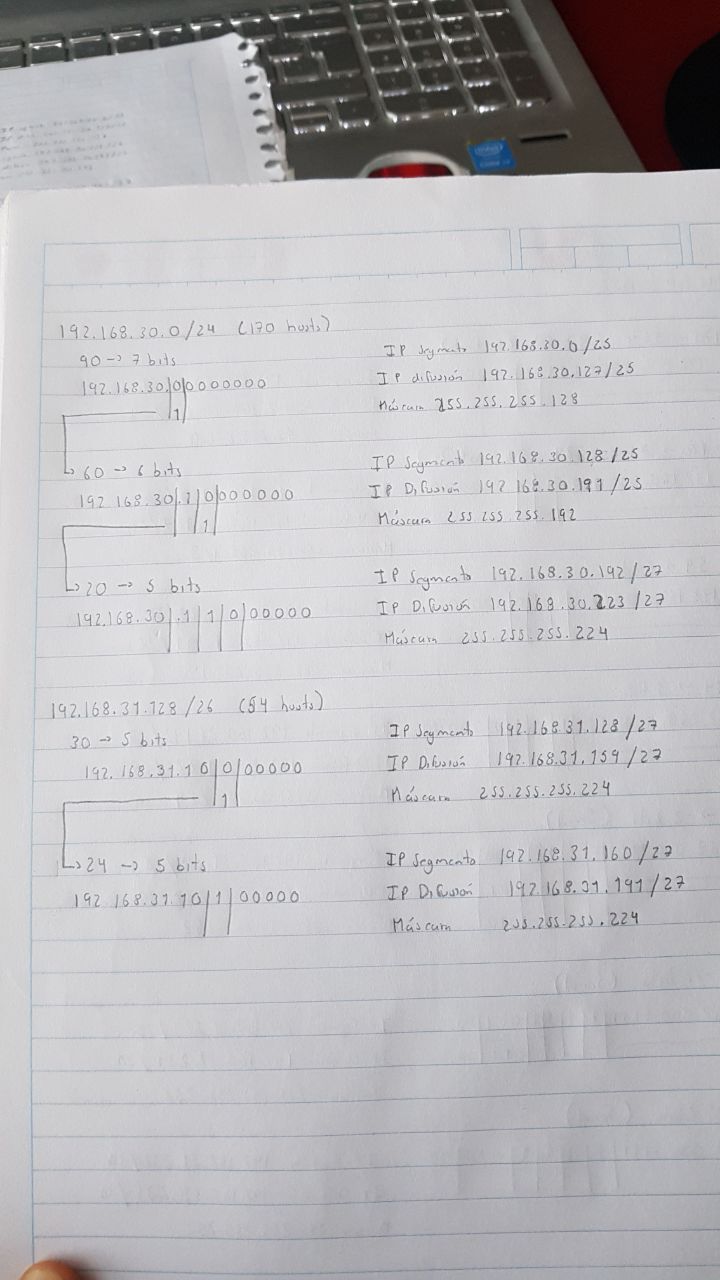 192.168.30.0/24 (170 hosts)
90 → 7 bits
192.168.30|0|0000000
1
IP segmento 192.168.30.0/25
IP difusión 192.168.30.127/25
Máscara 255.255.255.128
60 → 6 bits
192.168.30|.1|0|000000
1
IP Segmento 192.168.30.128/25
IP Difusión 192.168.30.191/25
Máscara 255.255.255.192
20 → 5 bits
192.168.30|.1|1|0|00000
IP Segmento 192.168.30.192/27
IP Difusión 192.168.30.223/27
Máscara 255.255.255.224
192.168.31.128/26 (54 hosts)
30 → 5 bits
192.168.31.10|0|00000
1
IP Segmento 192.168.31.128/27
IP Difusión 192.168.31.159/27
Máscara 255.255.255.224
24 → 5 bits
192.168.31.10|1|00000
IP Segmento 192.168.31.160/27
IP Difusión 192.168.31.191/27
Máscara 255.255.255.224